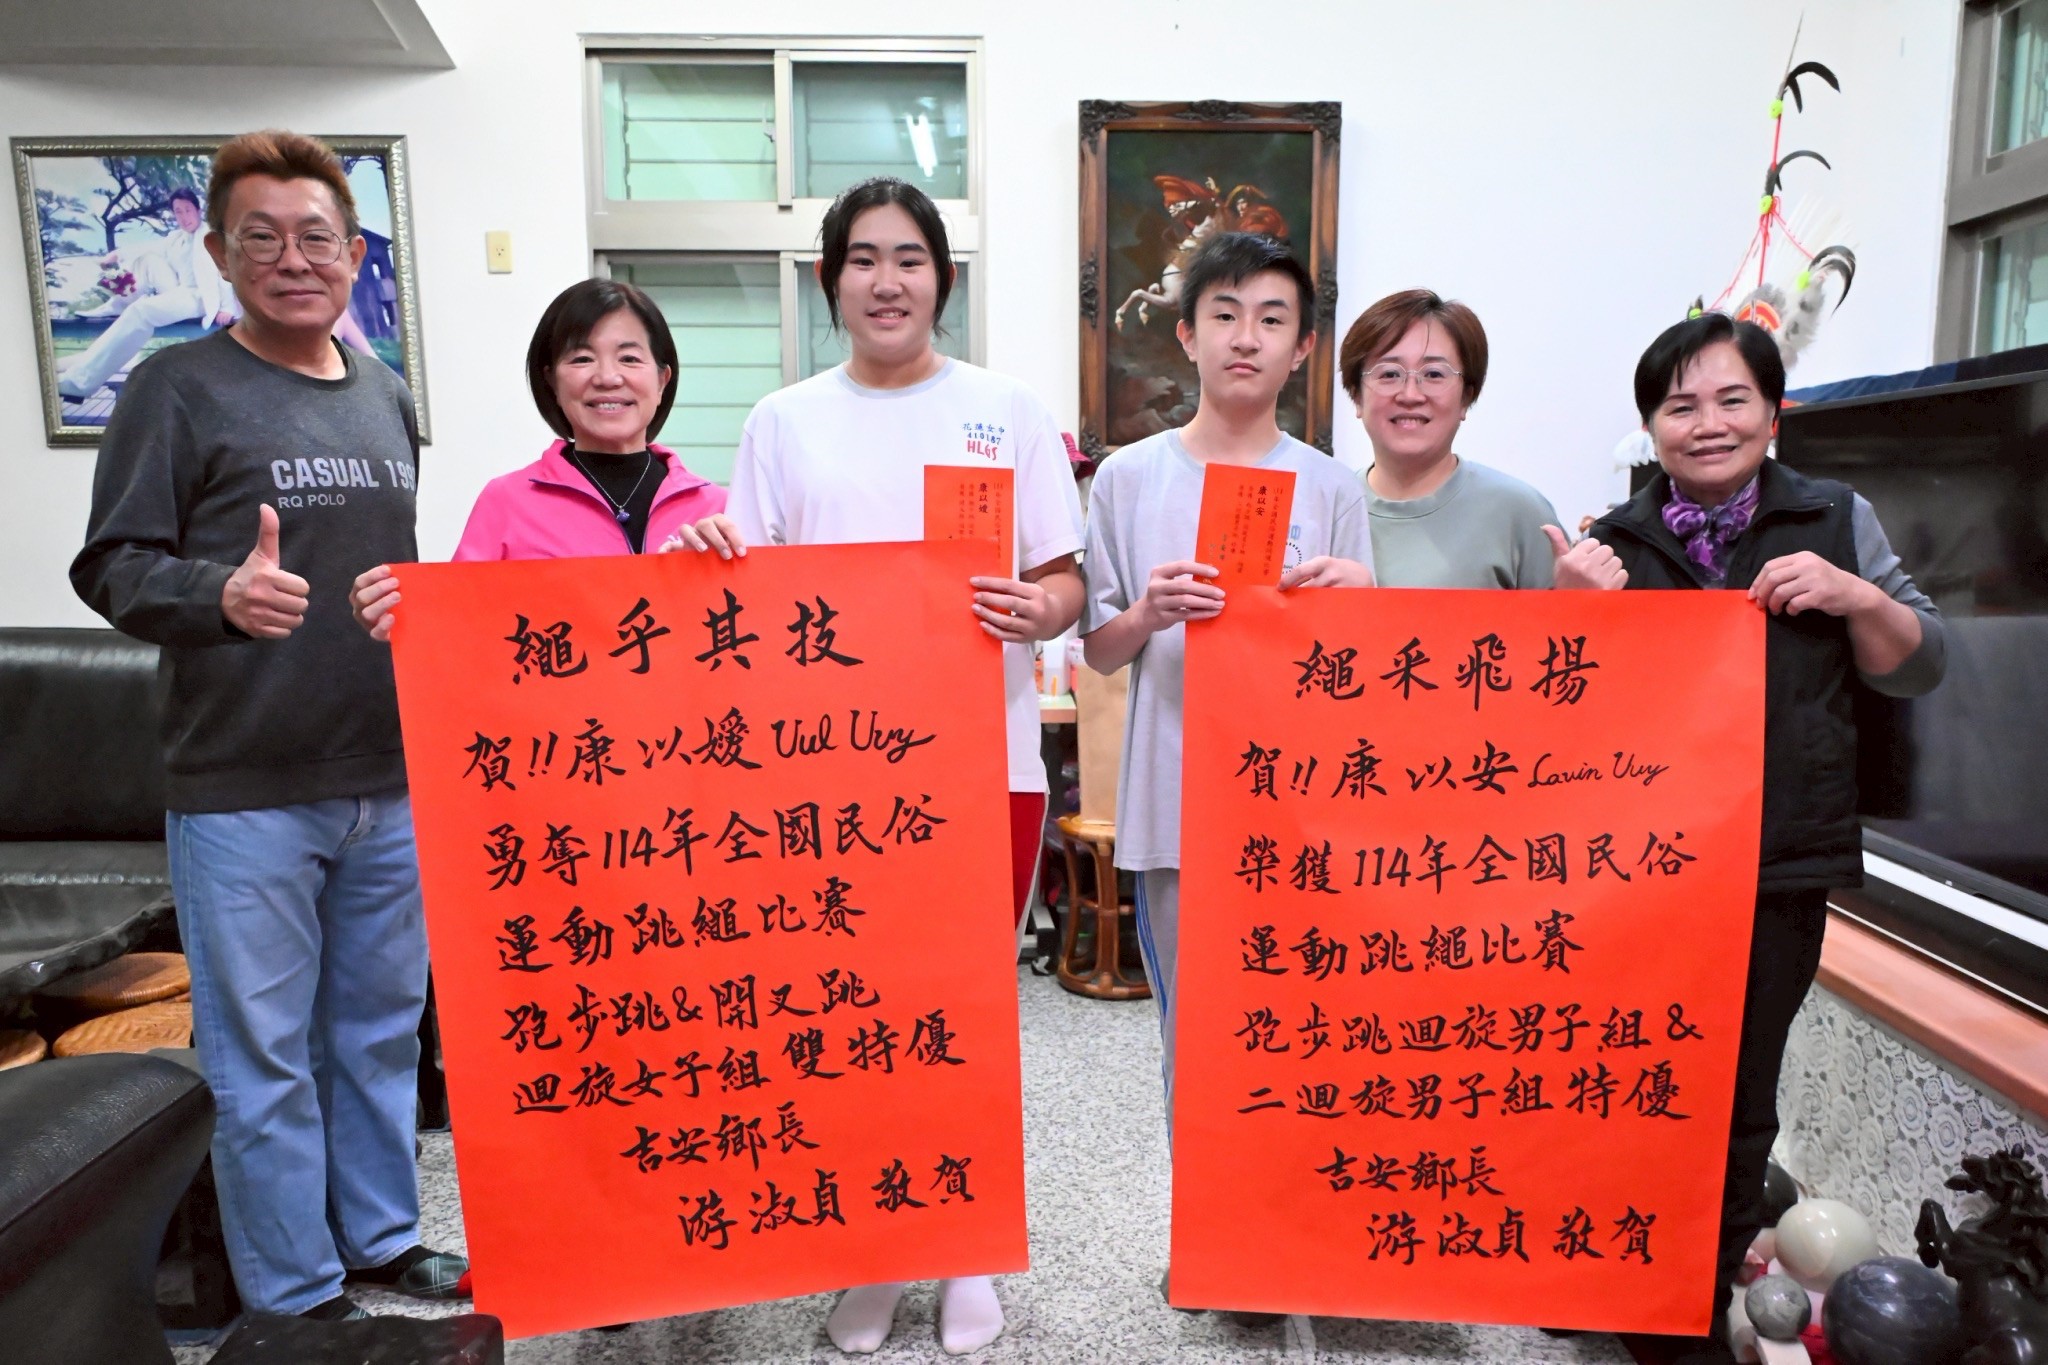 CASUAL 199
RQ POLO
花蓮女中
410187
HLGS
康以嫒
康以安
繩乎其技
賀!!康以嫒 Uul Uvy
勇奪114年全國民俗
運動跳繩比賽
跑步跳&開叉跳
迴旋女子組雙特優
吉安鄉長
游淑貞 敬賀
繩采飛揚
賀!!康以安 Lavin Uvy
榮獲114年全國民俗
運動跳繩比賽
跑步跳迴旋男子組&
二迴旋男子組特優
吉安鄉長
游淑貞 敬賀